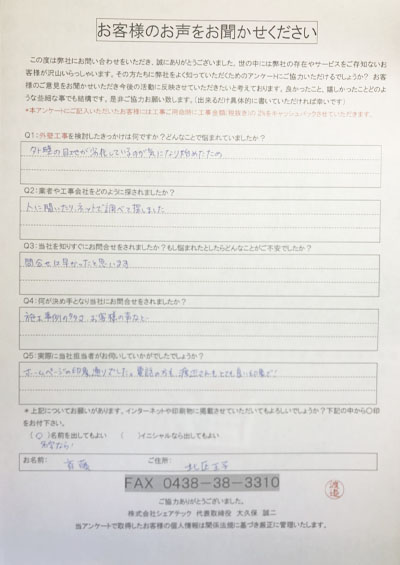 お客様のお声をお聞かせください
この度は弊社にお問い合わせをいただき、誠にありがとうございました。世の中には弊社の存在やサービスをご存知ないお
客様が沢山いらっしゃいます。その方たちに弊社をよく知っていただくためのアンケートにご協力いただけるでしょうか？ お客
様のご意見をお聞かせいただき今後の活動に反映させていただきたいと考えております。良かったこと、嬉しかったことどのよ
うな些細な事でも結構です。是非ご協力お願い致します。（出来るだけ具体的に書いていただければ幸いです）
*本アンケートにご記入いただいたお客様には工事ご用命時に工事金額(税抜き)の2%をキャッシュバックさせていただきます。
Q1:外壁工事を検討したきっかけは何ですか？どんなことで悩まれていましたか？
外壁の目地が劣化しているのが気になり始めたため
Q2:業者や工事会社をどのように探されましたか？
人に聞いたり、ネットで調べて探しました
Q3:当社を知りすぐにお問合せをされましたか？もし悩まれたとしたらどんなことがご不安でしたか？
問合せは早かったと思います
Q4:何が決め手となり当社にお問合せをされましたか？
施工事例の多さ、お客様の声など
Q5:実際に当社担当者がお伺いしていかがでしたでしょうか？
ホームページの印象通りでした。電話の方も、渡辺さんもとても良い印象で！
*上記についてお願いがあります。インターネットや印刷物に掲載させていただいてもよろしいでしょうか？下記の中から○印
をお付下さい。
(○)名前を出してもよい ( )イニシャルなら出してもよい
名字なら！
お名前： 首藤 ご住所：
FAX 0438-38-3310
渡邉
ご協力ありがとうございました。
株式会社シェアテック 代表取締役 大久保 誠二
当アンケートで取得したお客様の個人情報は関係法規に基づき厳正に管理いたします。